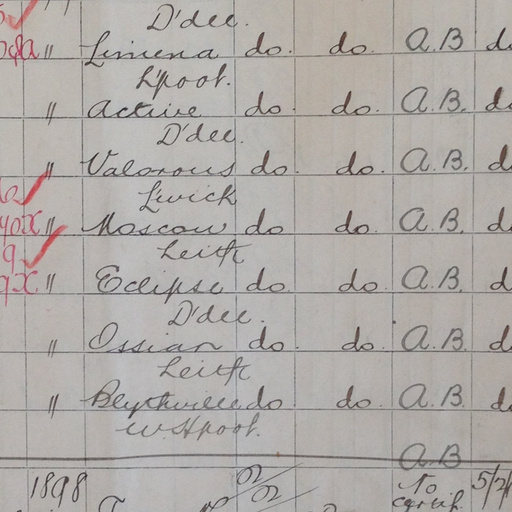 D'dee.
" Limena do. do. A.B d
L'pool.
" Active do. do. A.B. d
D'dee.
" Valorous do. do. A.B. d
L'wich
" Moscow do do. A.B. d
Leith
" Eclipse do. do A.B. d
D'dee.
" Ossian do. do. A.B. d
Leith
" Blythville do. do. A.B. d
W. H'pool.
A.B
1898 To 5/2
certif.